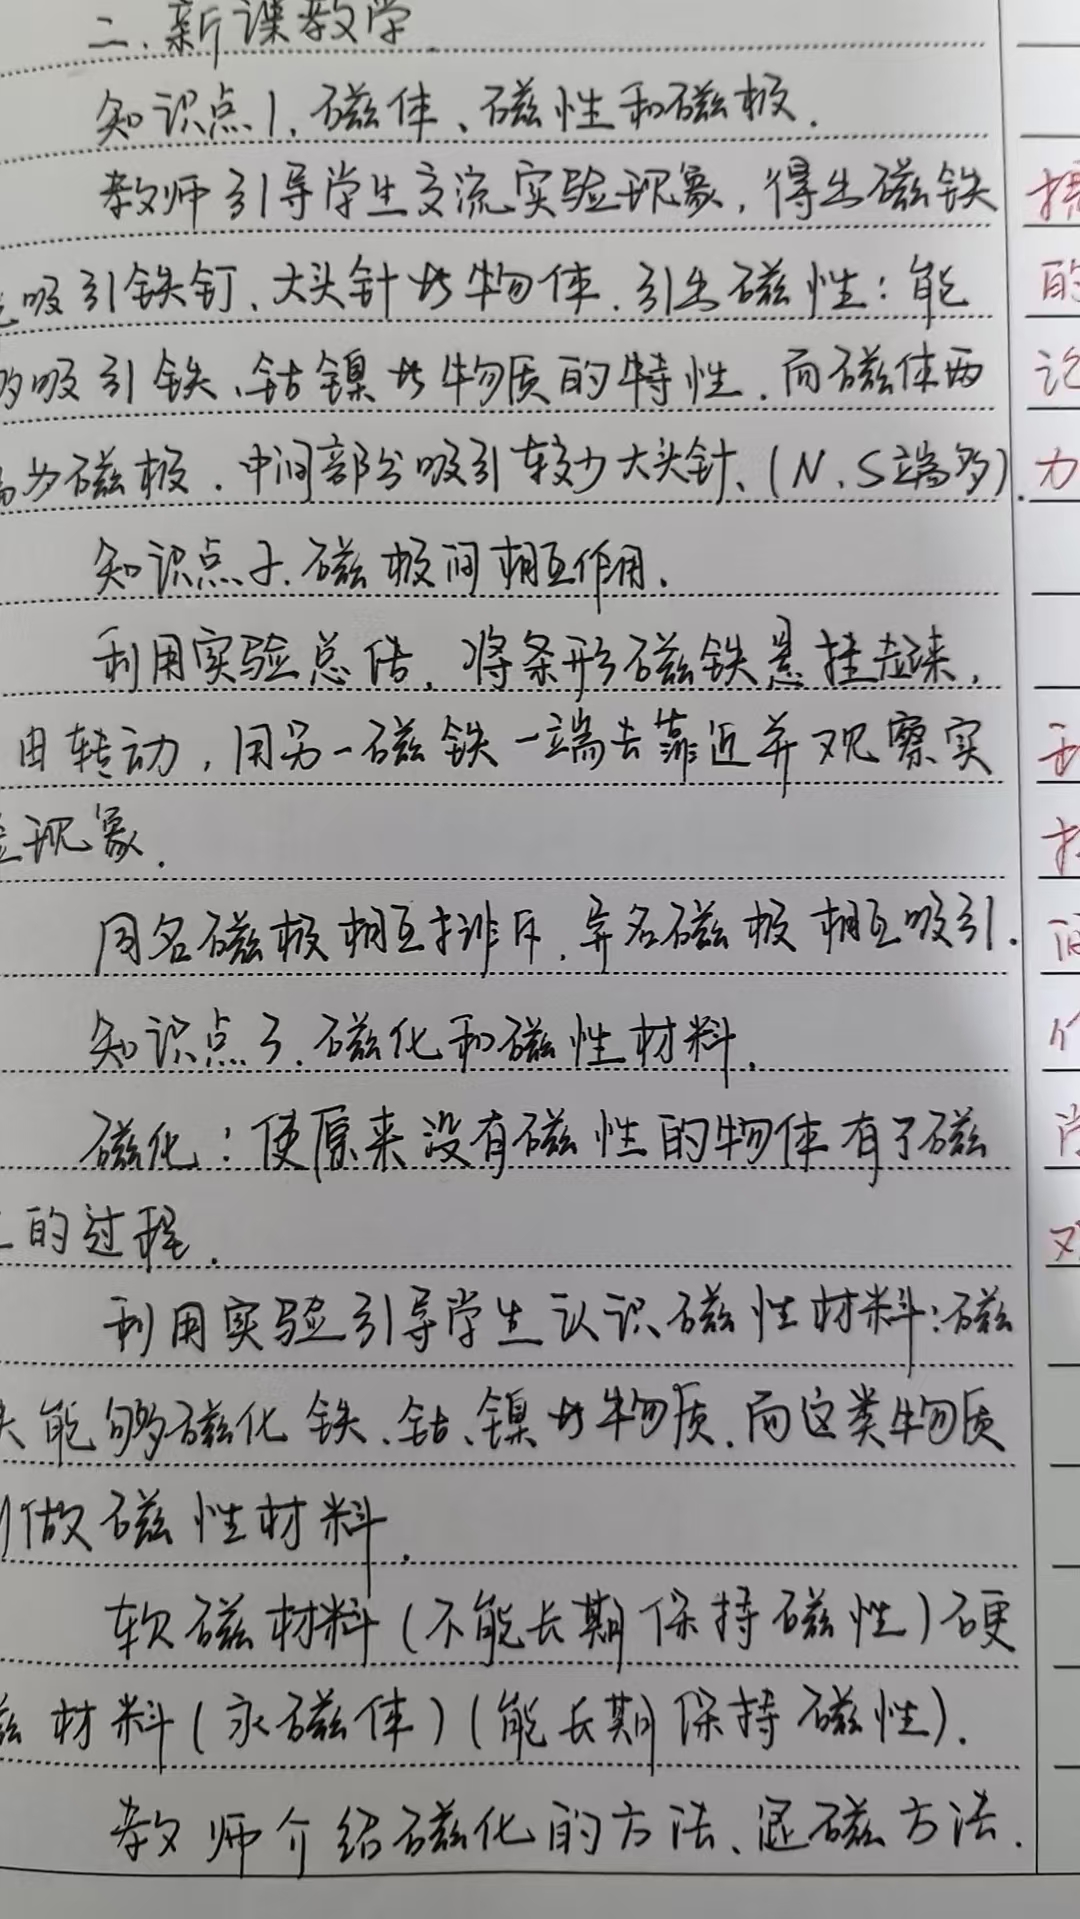 二.新课教学
知识点1.磁体、磁性和磁极.
教师引导学生交流实验现象,得出磁铁
吸引铁钉、大头针等物体.引出磁性:能
够吸引铁、钴镍等物质的特性.而磁体两
端为磁极.中间部分吸引较少大头针、(N、S端多).
知识点2.磁极间相互作用.
利用实验总结,将条形磁铁悬挂起来,
由转动,用另一磁铁一端去靠近并观察实
验现象.
同名磁极相互排斥,异名磁极相互吸引.
知识点3.磁化和磁性材料.
磁化:使原来没有磁性的物体有了磁
的过程.
利用实验引导学生认识磁性材料:磁
能够磁化铁、钴、镍等物质.而这类物质
叫做磁性材料.
软磁材料(不能长期保持磁性)硬
磁材料(永磁体)(能长期保持磁性).
教师介绍磁化的方法、退磁方法.
的
论
力